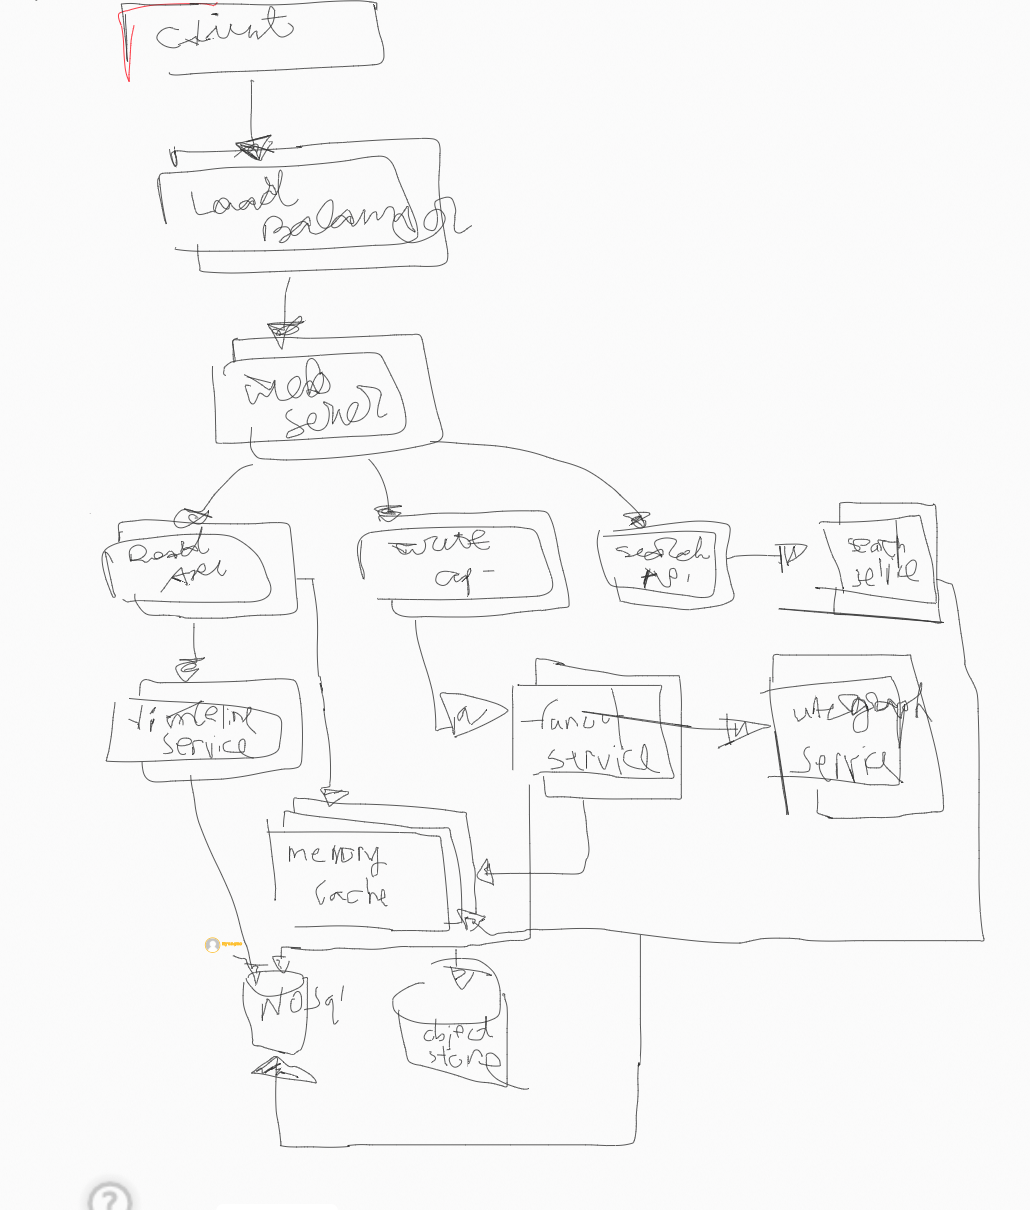 Client
Load
Balancer
Web
Server
Read
API
write
api
search
API
search
service
timeline
service
fanout
service
service
memory
Cache
NOSql
object
store
?